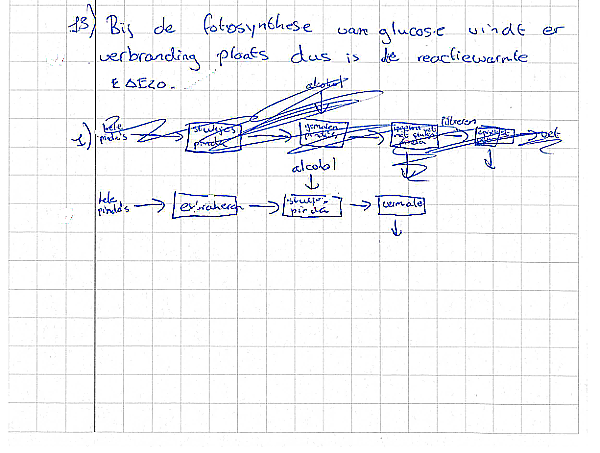 13) Bij de fotosynthese van glucose vindt er
verbranding plaats dus is de reactiewarmte
ΔE<0.
alcohol
1) hele pinda's → stukjes pinda → gemalen pinda → → filtreren → → vet
alcohol
hele pinda's → extraheren → stukje pinda → vermalen